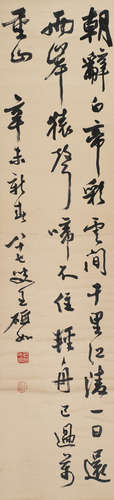 朝辭白帝彩雲間千里江陵一日還
兩岸猿聲啼不住輕舟已過萬
重山 辛未新春 八十七叟王硕如